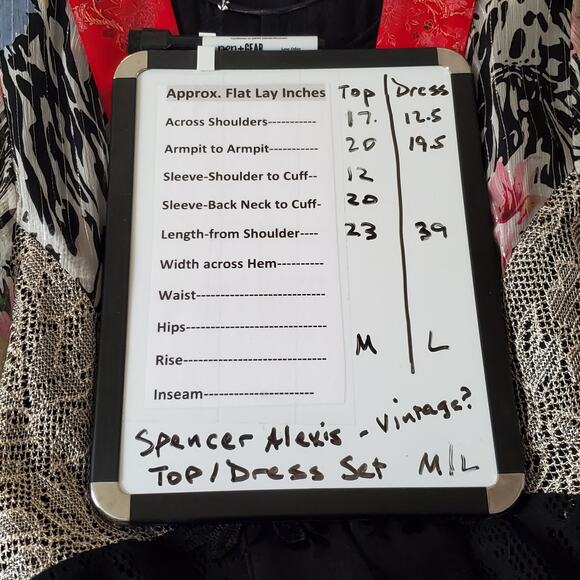 pen+GEAR Low Odor
Top Dress
Approx. Flat Lay Inches
Across Shoulders----------- 17. 12.5
Armpit to Armpit----------- 20 19.5
Sleeve-Shoulder to Cuff-- 12
Sleeve-Back Neck to Cuff- 20
Length-from Shoulder---- 23 39
Width across Hem----------
Waist--------------------------
Hips----------------------------
Rise-----------------------------
M L
Inseam----------------------
Spencer Alexis - Vintage?
Top/Dress Set M/L